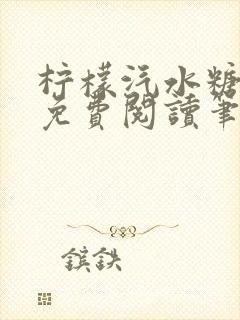 柠檬汽水糖
免費閱讀筆
鎵鉄